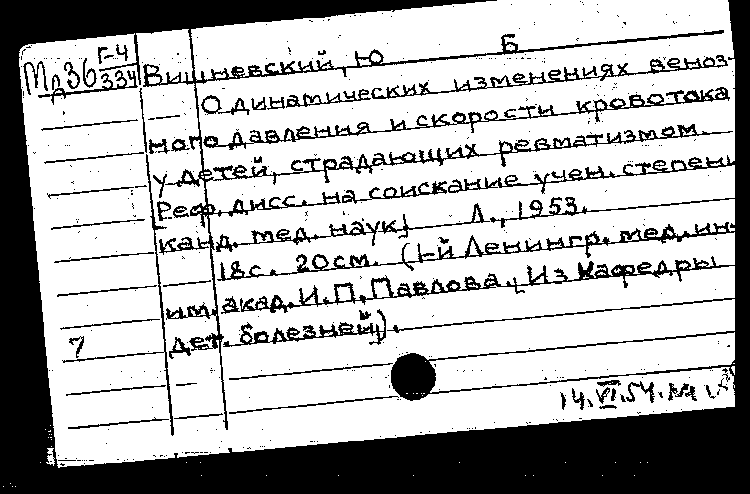 Мд36 Г-4/334 Вишневский, Ю Б
О динамических изменениях веноз-
ного давления и скорости кровотока
у детей, страдающих ревматизмом.
[Реф. дисс. на соискание учен. степени
канд. мед. наук] Л., 1953.
18с. 20см. (1-й Ленингр. мед. ин-
им. акад. И. П. Павлова. [Из кафедры
7 дет. болезней]).
14.VI.54.